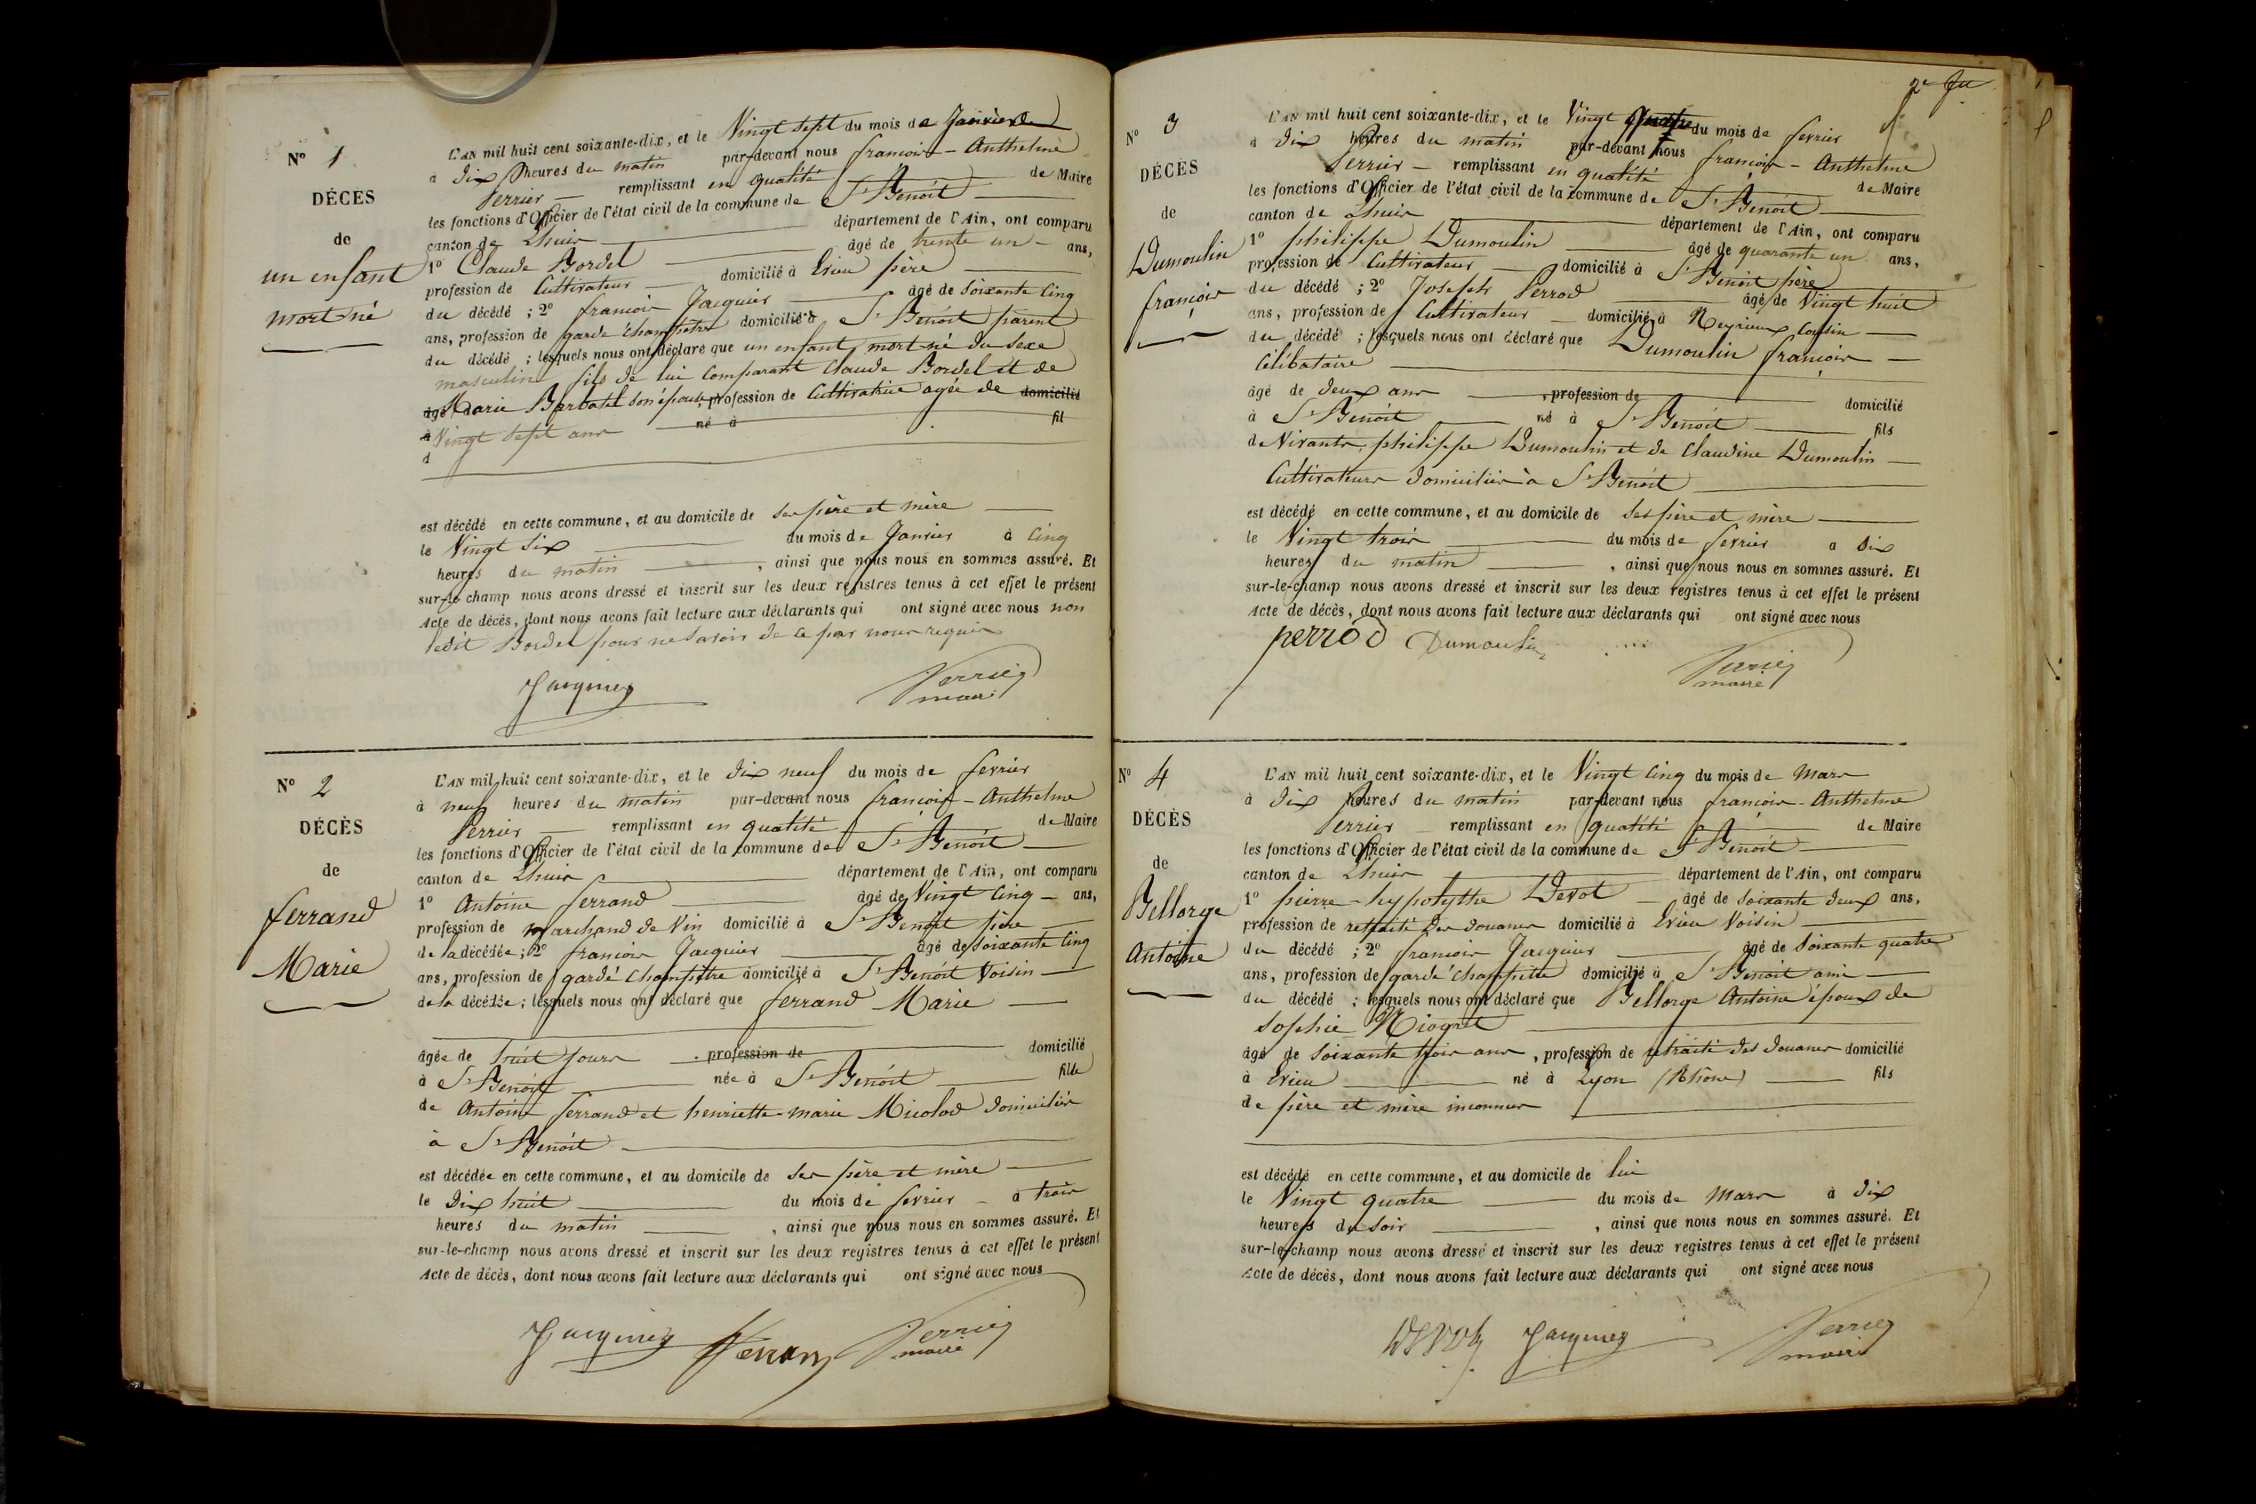 N° 1
DÉCÈS
de
un enfant
mort né
L'AN mil huit cent soixante-dix, et le Vingt sept du mois de Janvier
à dix heures du matin par-devant nous françois-Anthelme
Perrier remplissant en qualité de Maire
les fonctions d'Officier de l'état civil de la commune de St Benoît
canton de Lhuis département de l'Ain, ont comparu
1° Claude Bordel âgé de trente un ans,
profession de Cultivateur domicilié à Evieu père
du décédé ; 2° françois Jacquier âgé de soixante Cinq
ans, profession de garde champêtre domicilié à St Benoît parent
du décédé ; lesquels nous ont déclaré que un enfant mort-né du sexe
masculin fils de lui Comparant Claude Bordel et de
âgé de Marie Barbatel son épouse, profession de Cultivatrice agée de domicilié
à Vingt sept ans né à fil
d
est décédé en cette commune, et au domicile de ses père et mère
le Vingt Six du mois de Janvier à Cinq
heures du matin , ainsi que nous nous en sommes assuré. Et
sur-le-champ nous avons dressé et inscrit sur les deux registres tenus à cet effet le présent
Acte de décès, dont nous avons fait lecture aux déclarants qui ont signé avec nous non
ledit Bordel pour ne savoir de ce par nous requis
Jacquier Perrier
maire
N° 2
DÉCÈS
de
ferrand
Marie
L'AN mil huit cent soixante-dix, et le dix neuf du mois de fevrier
à neuf heures du matin par-devant nous françois-Anthelme
Perrier remplissant en qualité de Maire
les fonctions d'Officier de l'état civil de la commune de St Benoît
canton de Lhuis département de l'Ain, ont comparu
1° Antoine ferrand âgé de Vingt Cinq ans,
profession de marchand de Vin domicilié à St Benoît père
de la décédée ; 2° françois Jacquier âgé de soixante Cinq
ans, profession de garde Champêtre domicilié à St Benoît Voisin
de la décédée ; lesquels nous ont déclaré que ferrand Marie
âgée de huit jours , profession de domicilié
à St Benoît née à St Benoît fille
de Antoine ferrand et henriette-marie Micolod domiciliés
à St Benoît
est décédée en cette commune, et au domicile de ses père et mère
le Dix huit du mois de fevrier à trois
heures du matin , ainsi que nous nous en sommes assuré. Et
sur-le-champ nous avons dressé et inscrit sur les deux registres tenus à cet effet le présent
Acte de décès, dont nous avons fait lecture aux déclarants qui ont signé avec nous
Jacquier Perrier
maire
N° 3
DÉCÈS
de
Dumoulin
françois
L'AN mil huit cent soixante-dix, et le Vingt quatre du mois de fevrier
à Dix heures du matin par-devant nous françois-Anthelme
Perrier remplissant en qualité de Maire
les fonctions d'Officier de l'état civil de la commune de St Benoît
canton de Lhuis département de l'Ain, ont comparu
1° philippe Dumoulin âgé de quarante un ans,
profession de Cultivateur domicilié à St Benoît père
du décédé ; 2° Joseph Perrod âgé de Vingt huit
ans, profession de Cultivateur domicilié à Reyrieux Cousin
du décédé ; lesquels nous ont déclaré que Dumoulin françois
Célibataire
âgé de deux ans , profession de domicilié
à St Benoît né à St Benoît fils
de Vivants philippe Dumoulin et de Claudine Dumoulin
Cultivateurs domiciliés à St Benoît
est décédé en cette commune, et au domicile de ses père et mère
le Vingt trois du mois de fevrier à Dix
heures du matin , ainsi que nous nous en sommes assuré. Et
sur-le-champ nous avons dressé et inscrit sur les deux registres tenus à cet effet le présent
Acte de décès, dont nous avons fait lecture aux déclarants qui ont signé avec nous
perrod Dumoulin
Perrier
maire
N° 4
DÉCÈS
de
Bellorge
Antoine
L'AN mil huit cent soixante-dix, et le Vingt Cinq du mois de Mars
à Dix heures du matin par-devant nous françois-Anthelme
Perrier remplissant en qualité de Maire
les fonctions d'Officier de l'état civil de la commune de St Benoît
canton de Lhuis département de l'Ain, ont comparu
1° pierre-hypolythe Devot âgé de soixante deux ans,
profession de retraité des douanes domicilié à Evieu Voisin
du décédé ; 2° françois Jacquier âgé de soixante quatre
ans, profession de garde Champêtre domicilié à St Benoît ami
du décédé ; lesquels nous ont déclaré que Bellorge Antoine époux de
Sophie
âgé de soixante trois ans , profession de retraité des Douanes domicilié
à Evieu né à Lyon (Rhône) fils
de père et mère inconnus
est décédé en cette commune, et au domicile de lui
le Vingt quatre du mois de Mars à Dix
heures du soir , ainsi que nous nous en sommes assuré. Et
sur-le-champ nous avons dressé et inscrit sur les deux registres tenus à cet effet le présent
Acte de décès, dont nous avons fait lecture aux déclarants qui ont signé avec nous
Devot Jacquier Perrier
maire